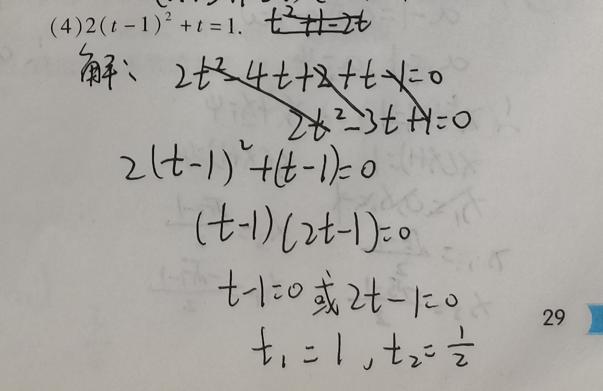 (4)2(t-1)²+t=1. t²+1-2t
解: 2t²-4t+2+t-1=0
2t²-3t+1=0
2(t-1)²+(t-1)=0
(t-1)(2t-1)=0
t-1=0或2t-1=0
t₁=1,t₂=1/2
29